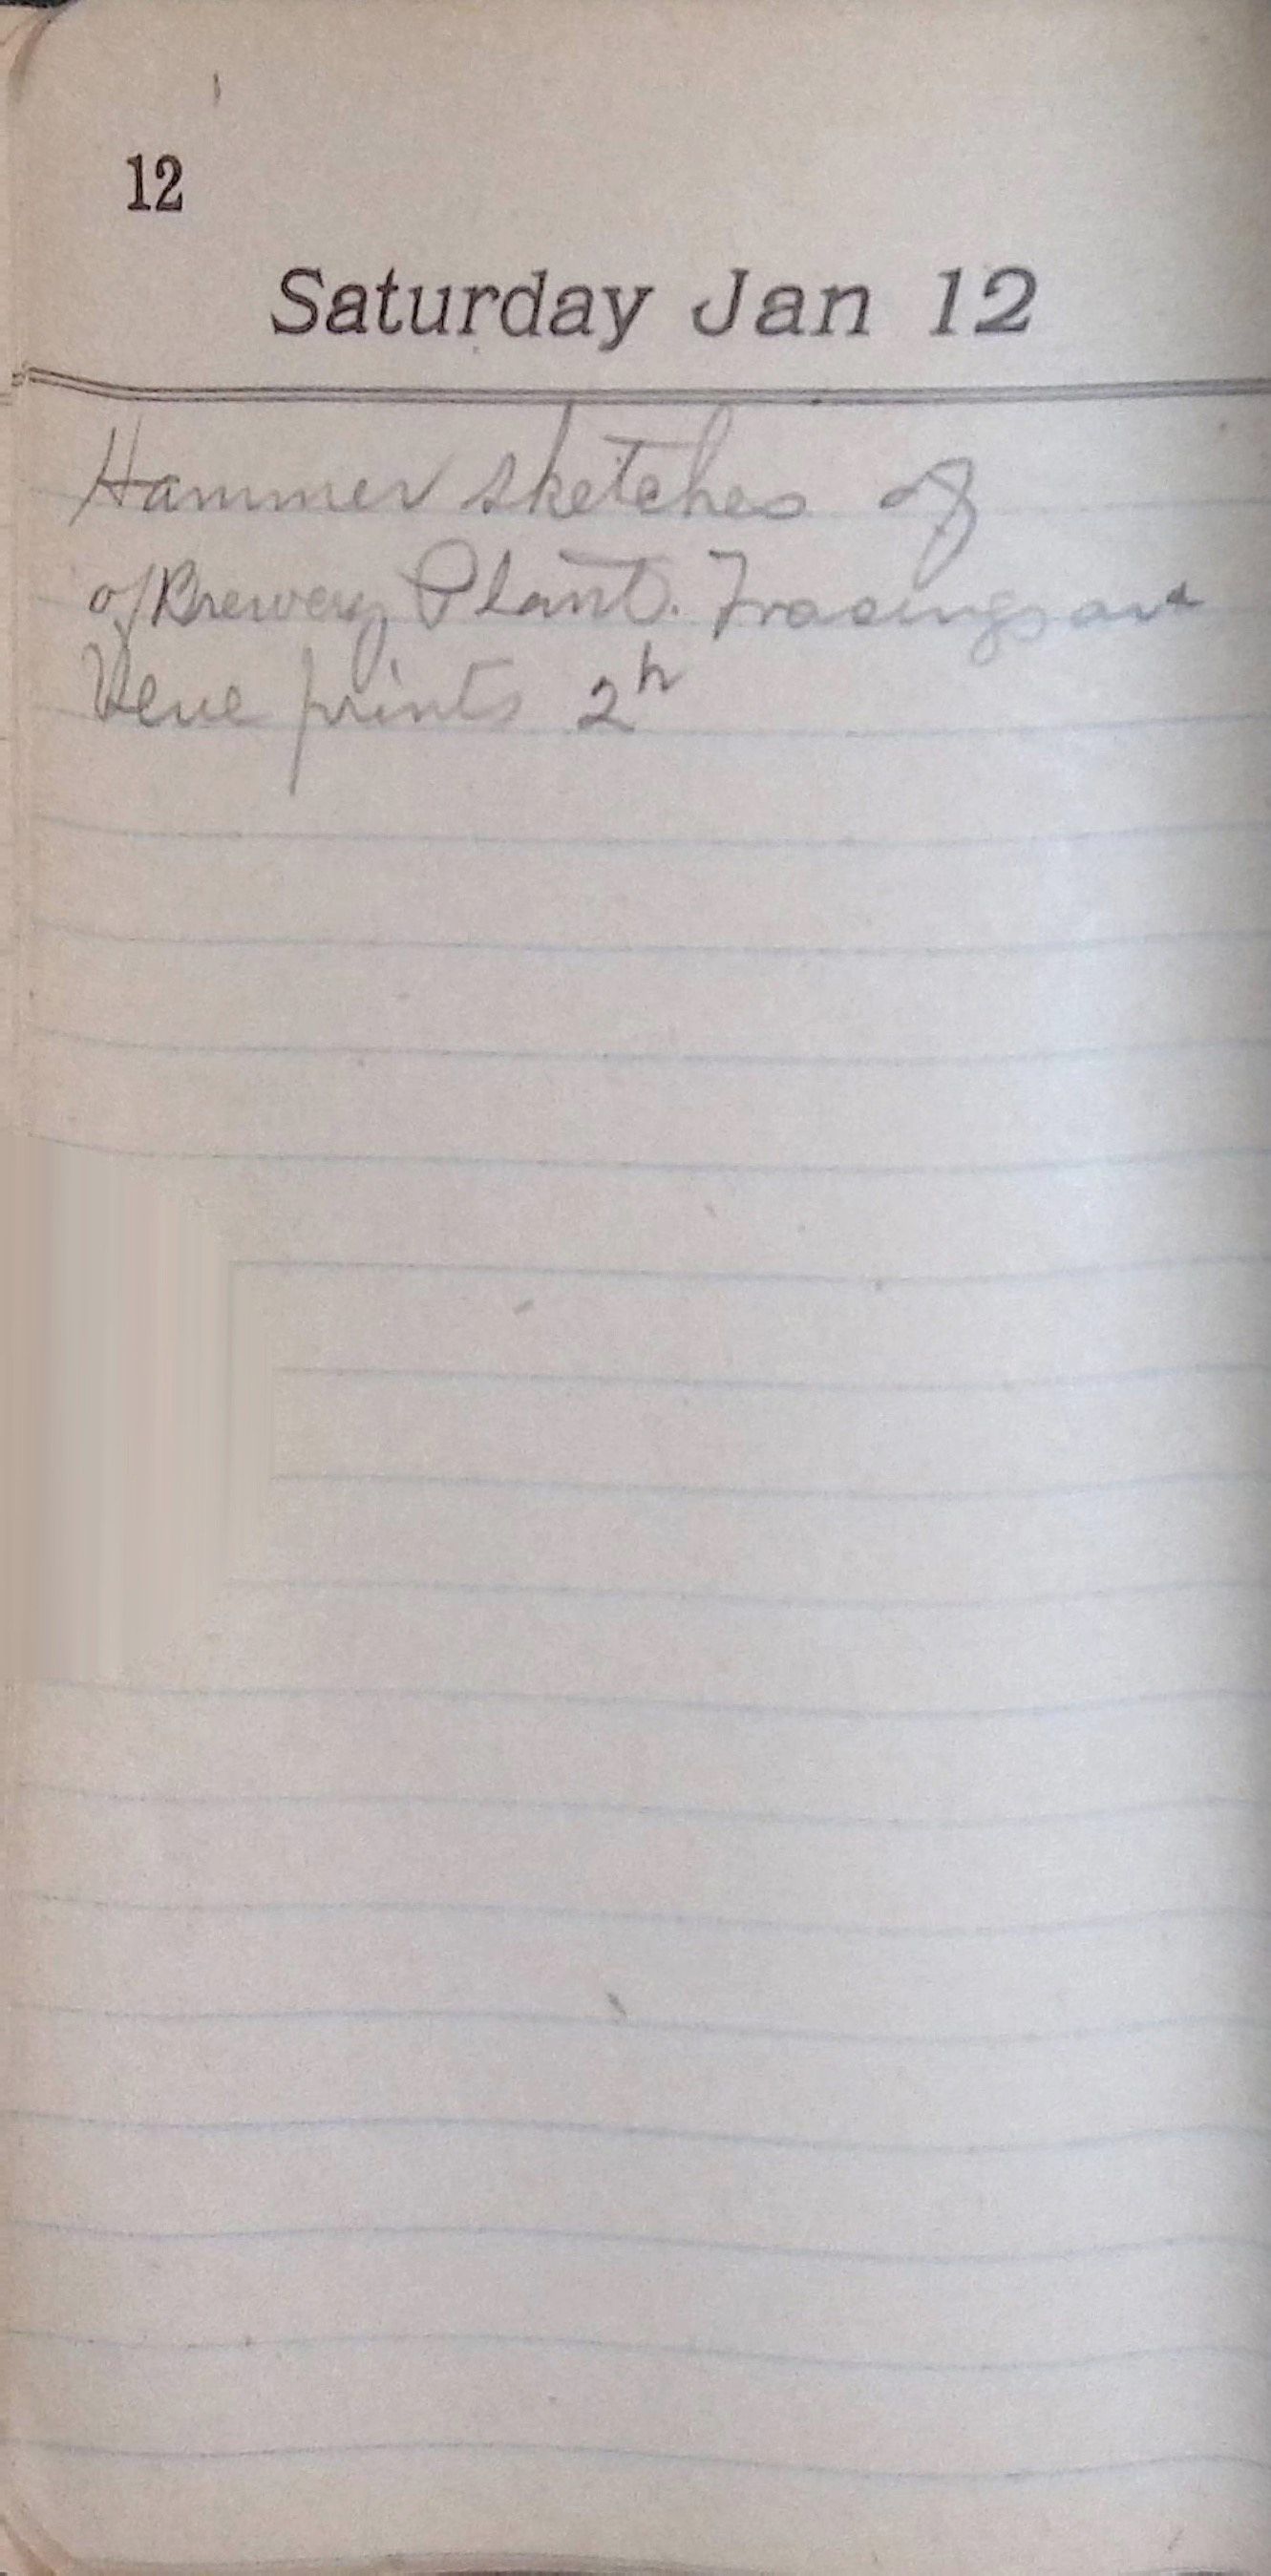 12
Saturday Jan 12
Hammer sketches of
of Brewery Plant. Tracings and
blue prints 2h